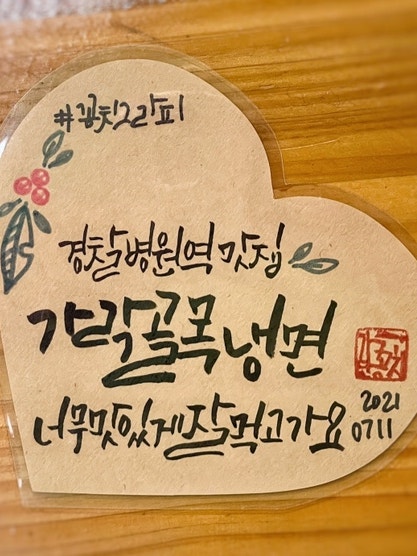 #꽁치그라피
경찰병원역 맛집
가락골목냉면
너무맛있게잘먹고가요
2021
0711